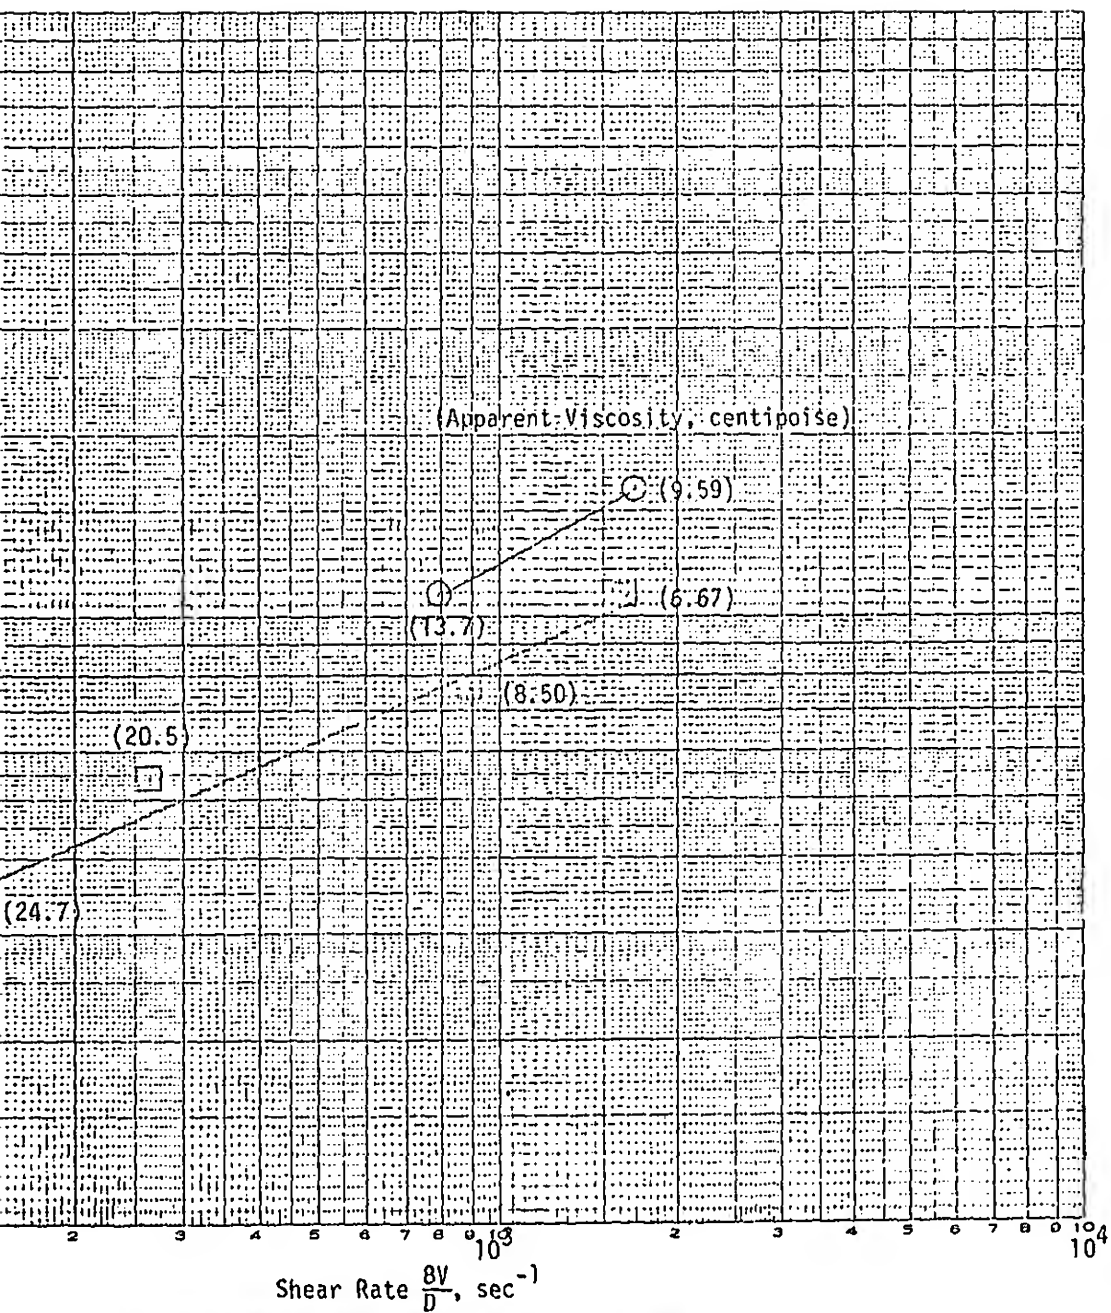 (Apparent Viscosity, centipoise)
(9.59)
(6.67)
(13.7)
(8.50)
(20.5)
(24.7)
2 3 4 5 6 7 8 9 10 2 3 4 5 6 7 8 9 10
10³ 10⁴
Shear Rate 8V/D, sec⁻¹